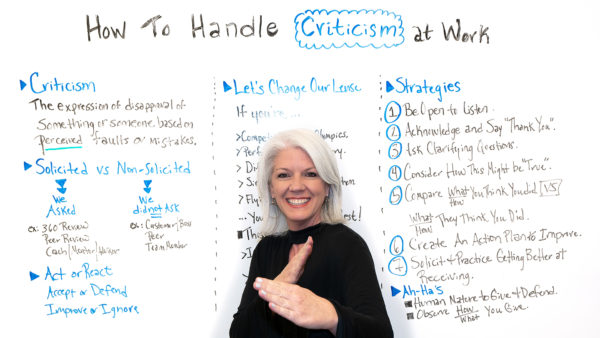 How To Handle Criticism at Work
Criticism
The expression of disapproval of
Something or Someone based on
perceived faults or mistakes.
Solicited vs Non-Solicited
We
Asked
ex: 360 Review
Peer Review
Coach/Mentor/Advisor
We
did not Ask
ex: Customer/Boss
Peer
Team Member
Act or React
Accept or Defend
Improve or Ignore
Let's Change Our Lense
If you're, ...
>Compet
mpics.
>Perf
>Dri
>Fly
You
est!
Strategies
1 Be Open to Listen.
2 Acknowledge and Say "Thank You".
3 Ask Clarifying Questions.
4 Consider How This Might be "True".
5 Compare What How You Think You did VS
What How They Think You Did.
6 Create An Action Plan to Improve.
7 Solicit & Practice Getting Better at
Receiving.
Ah-Ha's
Human Nature to Give & Defend.
Observe How What You Give.